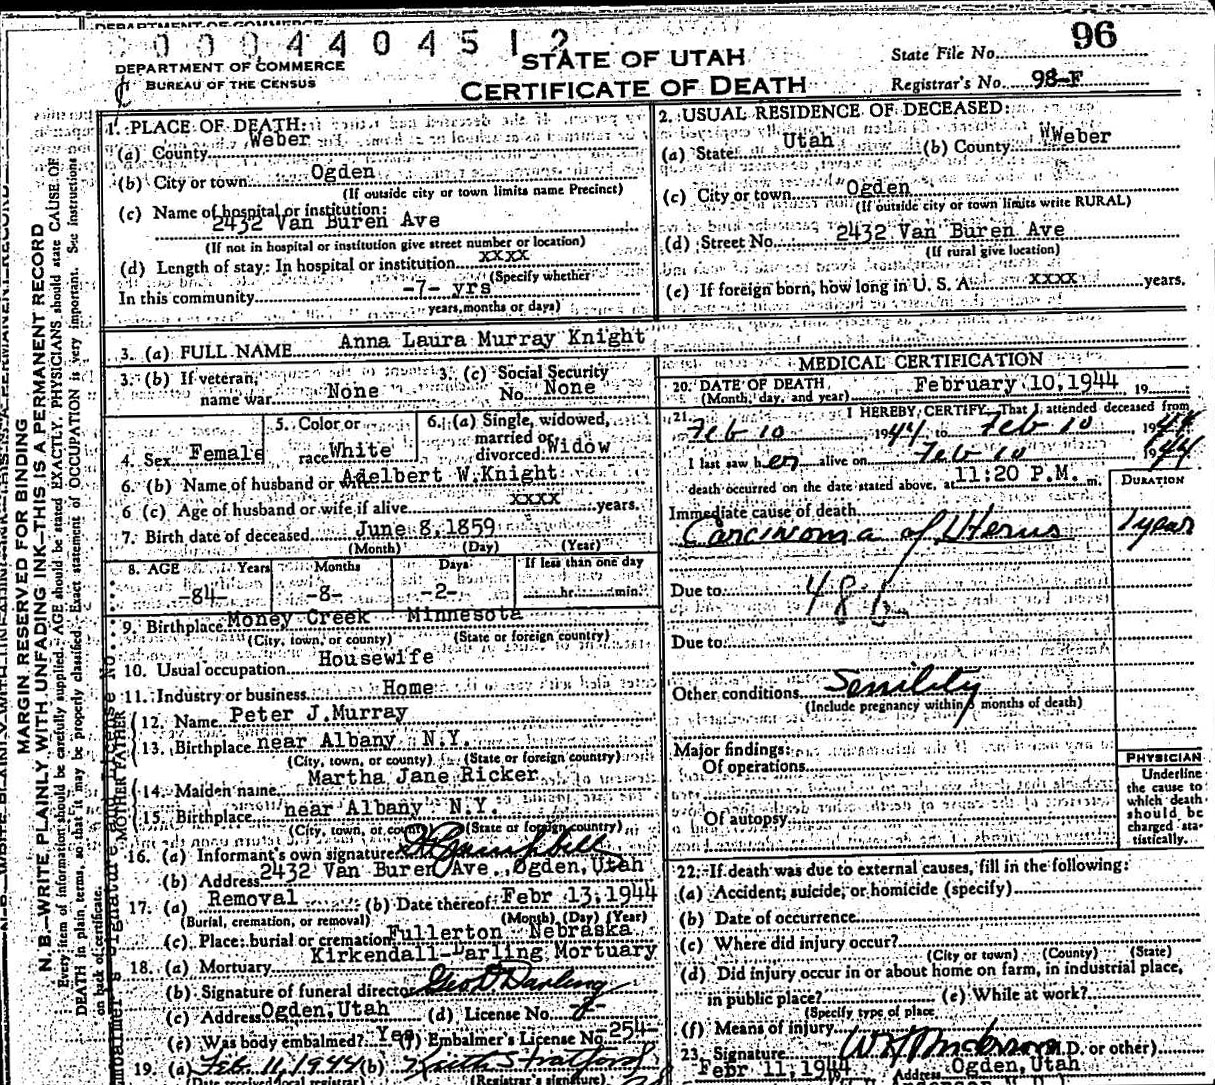 DEPARTMENT OF COMMERCE
0 0 0 4 4 0 4 5 1 2
DEPARTMENT OF COMMERCE
BUREAU OF THE CENSUS
STATE OF UTAH
CERTIFICATE OF DEATH
State File No. 96
Registrar's No. 98-F
MARGIN RESERVED FOR BINDING
N. B.—WRITE PLAINLY WITH UNFADING INK—THIS IS A PERMANENT RECORD
Every item of information should be carefully supplied. AGE should be stated EXACTLY. PHYSICIANS should state CAUSE OF
DEATH in plain terms, so that it may be properly classified. Exact statement of OCCUPATION is very important. See instructions
on back of certificate.
1. PLACE OF DEATH:
(a) County Weber
(b) City or town Ogden
(If outside city or town limits name Precinct)
(c) Name of hospital or institution:
2432 Van Buren Ave
(If not in hospital or institution give street number or location)
(d) Length of stay: In hospital or institution xxxx
(Specify whether
In this community -7- yrs
years, months or days)
2. USUAL RESIDENCE OF DECEASED:
(a) State Utah (b) County WWeber
(c) City or town Ogden
(If outside city or town limits write RURAL)
(d) Street No. 2432 Van Buren Ave
(If rural give location)
(e) If foreign born, how long in U. S. A. xxxx years.
3. (a) FULL NAME Anna Laura Murray Knight
3. (b) If veteran, name war None
3. (c) Social Security No. None
4. Sex Female
5. Color or race White
6. (a) Single, widowed, married or divorced Widow
6. (b) Name of husband or wife Adelbert W.Knight
6 (c) Age of husband or wife, if alive xxxx years.
7. Birth date of deceased June 8,1859
(Month) (Day) (Year)
8. AGE Years Months Days If less than one day
-84- -8- -2- hr. min.
9. Birthplace Money Creek Minnesota
(City, town, or county) (State or foreign country)
10. Usual occupation Housewife
11. Industry or business Home
FATHER
12. Name Peter J.Murray
13. Birthplace near Albany N.Y.
(City, town, or county) (State or foreign country)
MOTHER
14. Maiden name Martha Jane Ricker
15. Birthplace near Albany N.Y.
(City, town, or county) (State or foreign country)
16. (a) Informant's own signature Campbell
(b) Address 2432 Van Buren Ave.,Ogden,Utah
17. (a) Removal (b) Date thereof Febr 13,1944
(Burial, cremation, or removal) (Month) (Day) (Year)
(c) Place: burial or cremation Fullerton Nebraska
18. (a) Mortuary Kirkendall-Darling Mortuary
(b) Signature of funeral director Geo D Darling
(c) Address Ogden,Utah (d) License No.
(e) Was body embalmed? Yes (f) Embalmer's License No. -254-
19. (a) Feb. 11, 1944 (b) Keith Stratford
(Date received local registrar) (Registrar's signature)
MEDICAL CERTIFICATION
20. DATE OF DEATH February 10,1944 19
(Month, day, and year)
21. I HEREBY CERTIFY, That I attended deceased from
Feb 10 1944 to Feb 10 1944
I last saw her alive on Feb 10 1944
death occurred on the date stated above, at 11:20 P.M. m.
DURATION
Immediate cause of death
Carcinoma of Uterus 1 year
Due to
Due to
Other conditions Senility
(Include pregnancy within 3 months of death)
Major findings:
Of operations
Of autopsy
PHYSICIAN
Underline
the cause to
which death
should be
charged sta-
tistically.
22. If death was due to external causes, fill in the following:
(a) Accident, suicide, or homicide (specify)
(b) Date of occurrence
(c) Where did injury occur?
(City or town) (County) (State)
(d) Did injury occur in or about home on farm, in industrial place,
in public place? (e) While at work?
(Specify type of place
(f) Means of injury
23. Signature (M.D. or other)
Febr 11,1944 Address Ogden,Utah